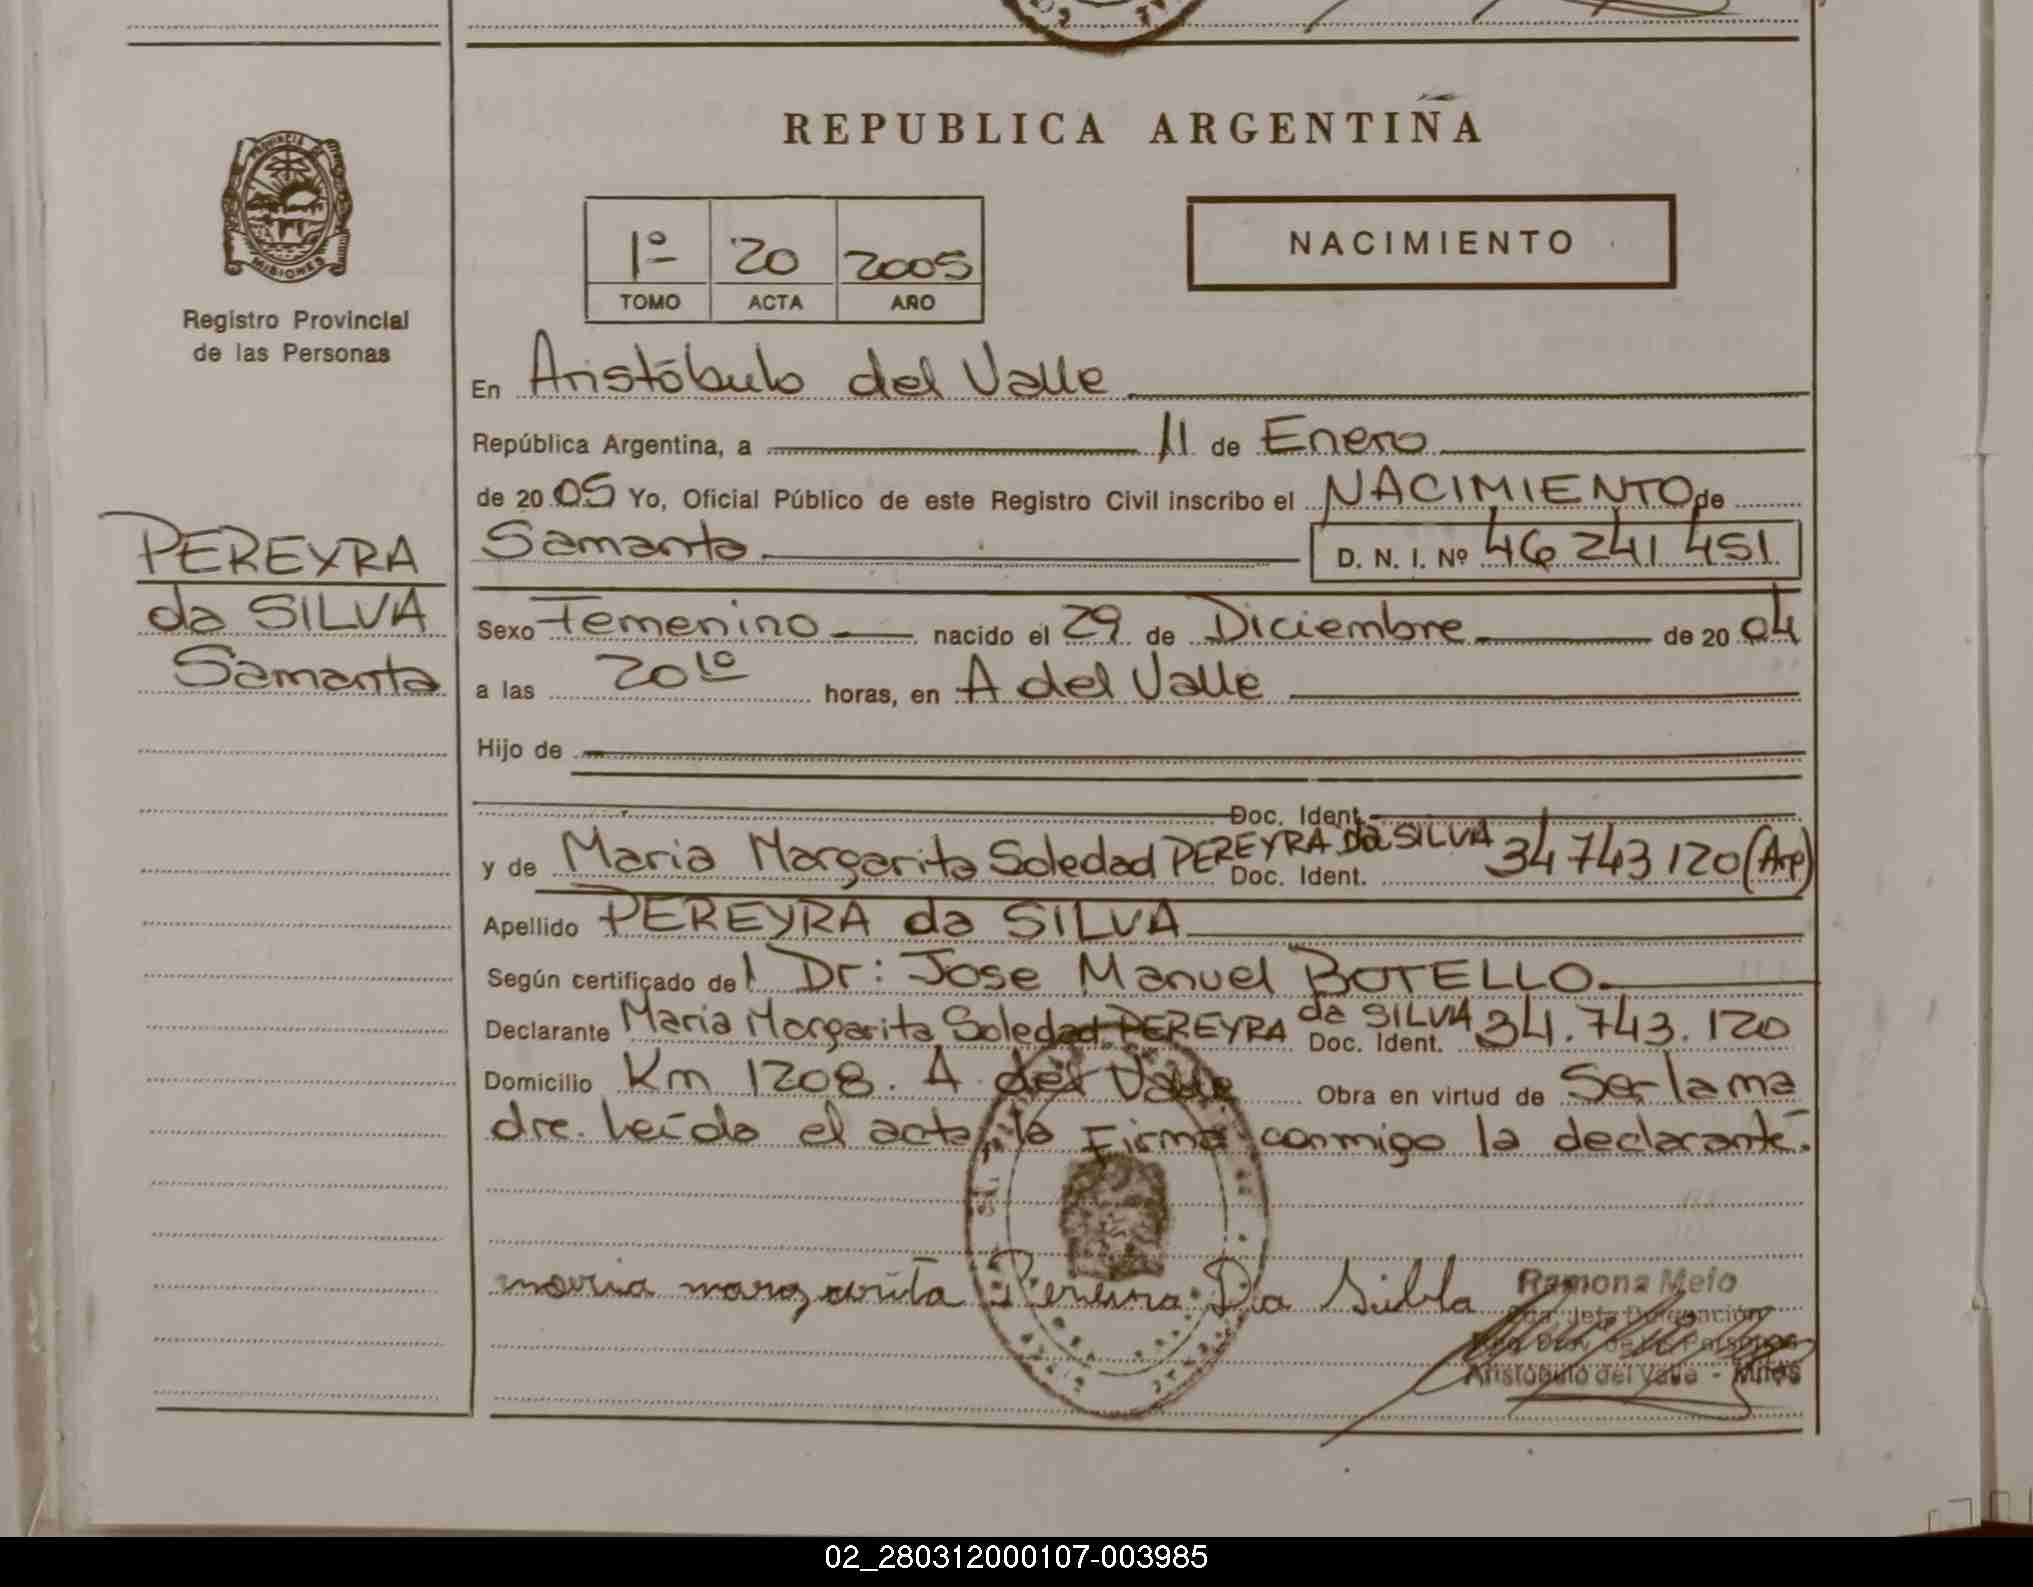 REPUBLICA ARGENTINA
PROVINCIA DE
MISIONES
Registro Provincial
de las Personas
1º 20 2005
TOMO ACTA AÑO
NACIMIENTO
En Aristóbulo del Valle
República Argentina, a 11 de Enero
de 2005 Yo, Oficial Público de este Registro Civil inscribo el NACIMIENTO de
Samanta D. N. I. Nº 46 241 451
PEREYRA
da SILVA
Samanta
Sexo Femenino nacido el 29 de Diciembre de 2004
a las 20 10 horas, en A del Valle
Hijo de
Doc. Ident.
y de Maria Margarita Soledad PEREYRA da SILVA Doc. Ident. 34 743 120 (Arg)
Apellido PEREYRA da SILVA
Según certificado del Dr: Jose Manuel BOTELLO
Declarante Maria Margarita Soledad PEREYRA da SILVA Doc. Ident. 34.743.120
Domicilio Km 1208. A del Valle Obra en virtud de Ser la ma
dre. Leída el acta la Firma conmigo la declarante.
maria margarita Pereira Da Silva
Ramona Melo
Aristóbulo del Valle - Mnes
02_280312000107-003985